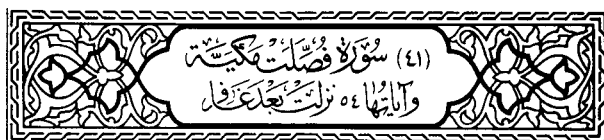 (٤١) سُورَةُ فُصِّلَتْ مَكِّيَّة
وَآيَاتُهَا ٥٤ نَزَلَتْ بَعْدَ غَافِرْ